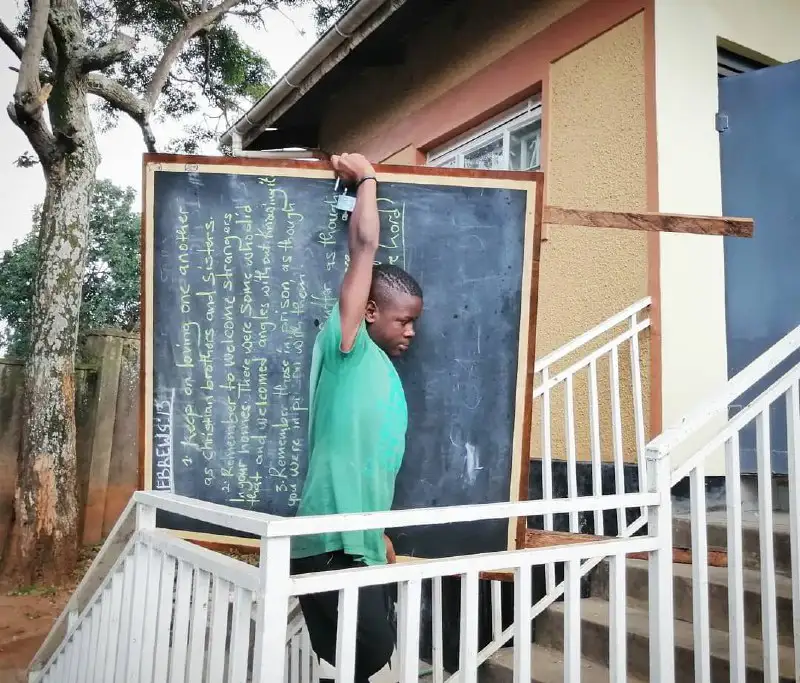 EBREWS:13
1. Keep on loving one another
as christian brothers and sisters.
2. Remember to welcome strangers
in your homes. There were some who did
that and welcomed angles without knowing it
3. Remember those in prison, as though
you were in pri on with them
ffer as though